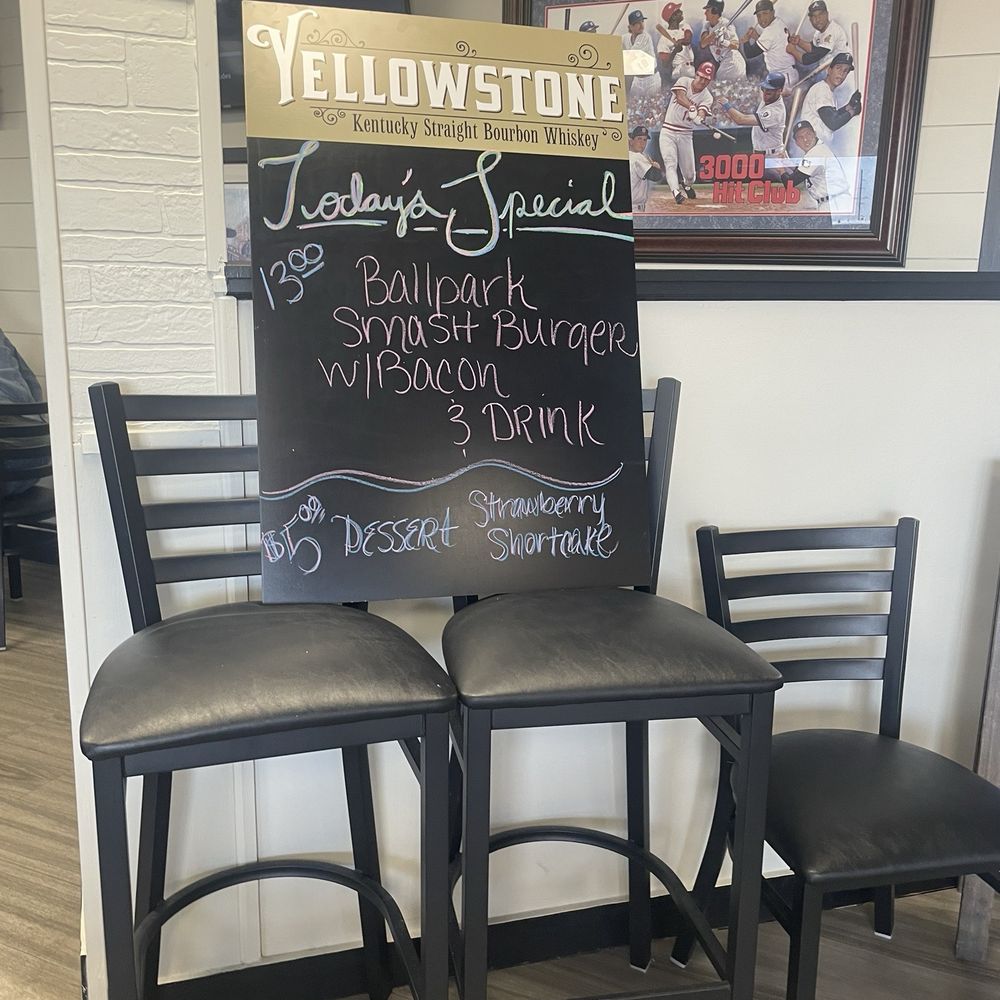 YELLOWSTONE
Kentucky Straight Bourbon Whiskey
Today's Special
13.00
Ballpark
Smash Burger
w/Bacon
& Drink
$5.00 Dessert Strawberry
Shortcake
3000
Hit Club